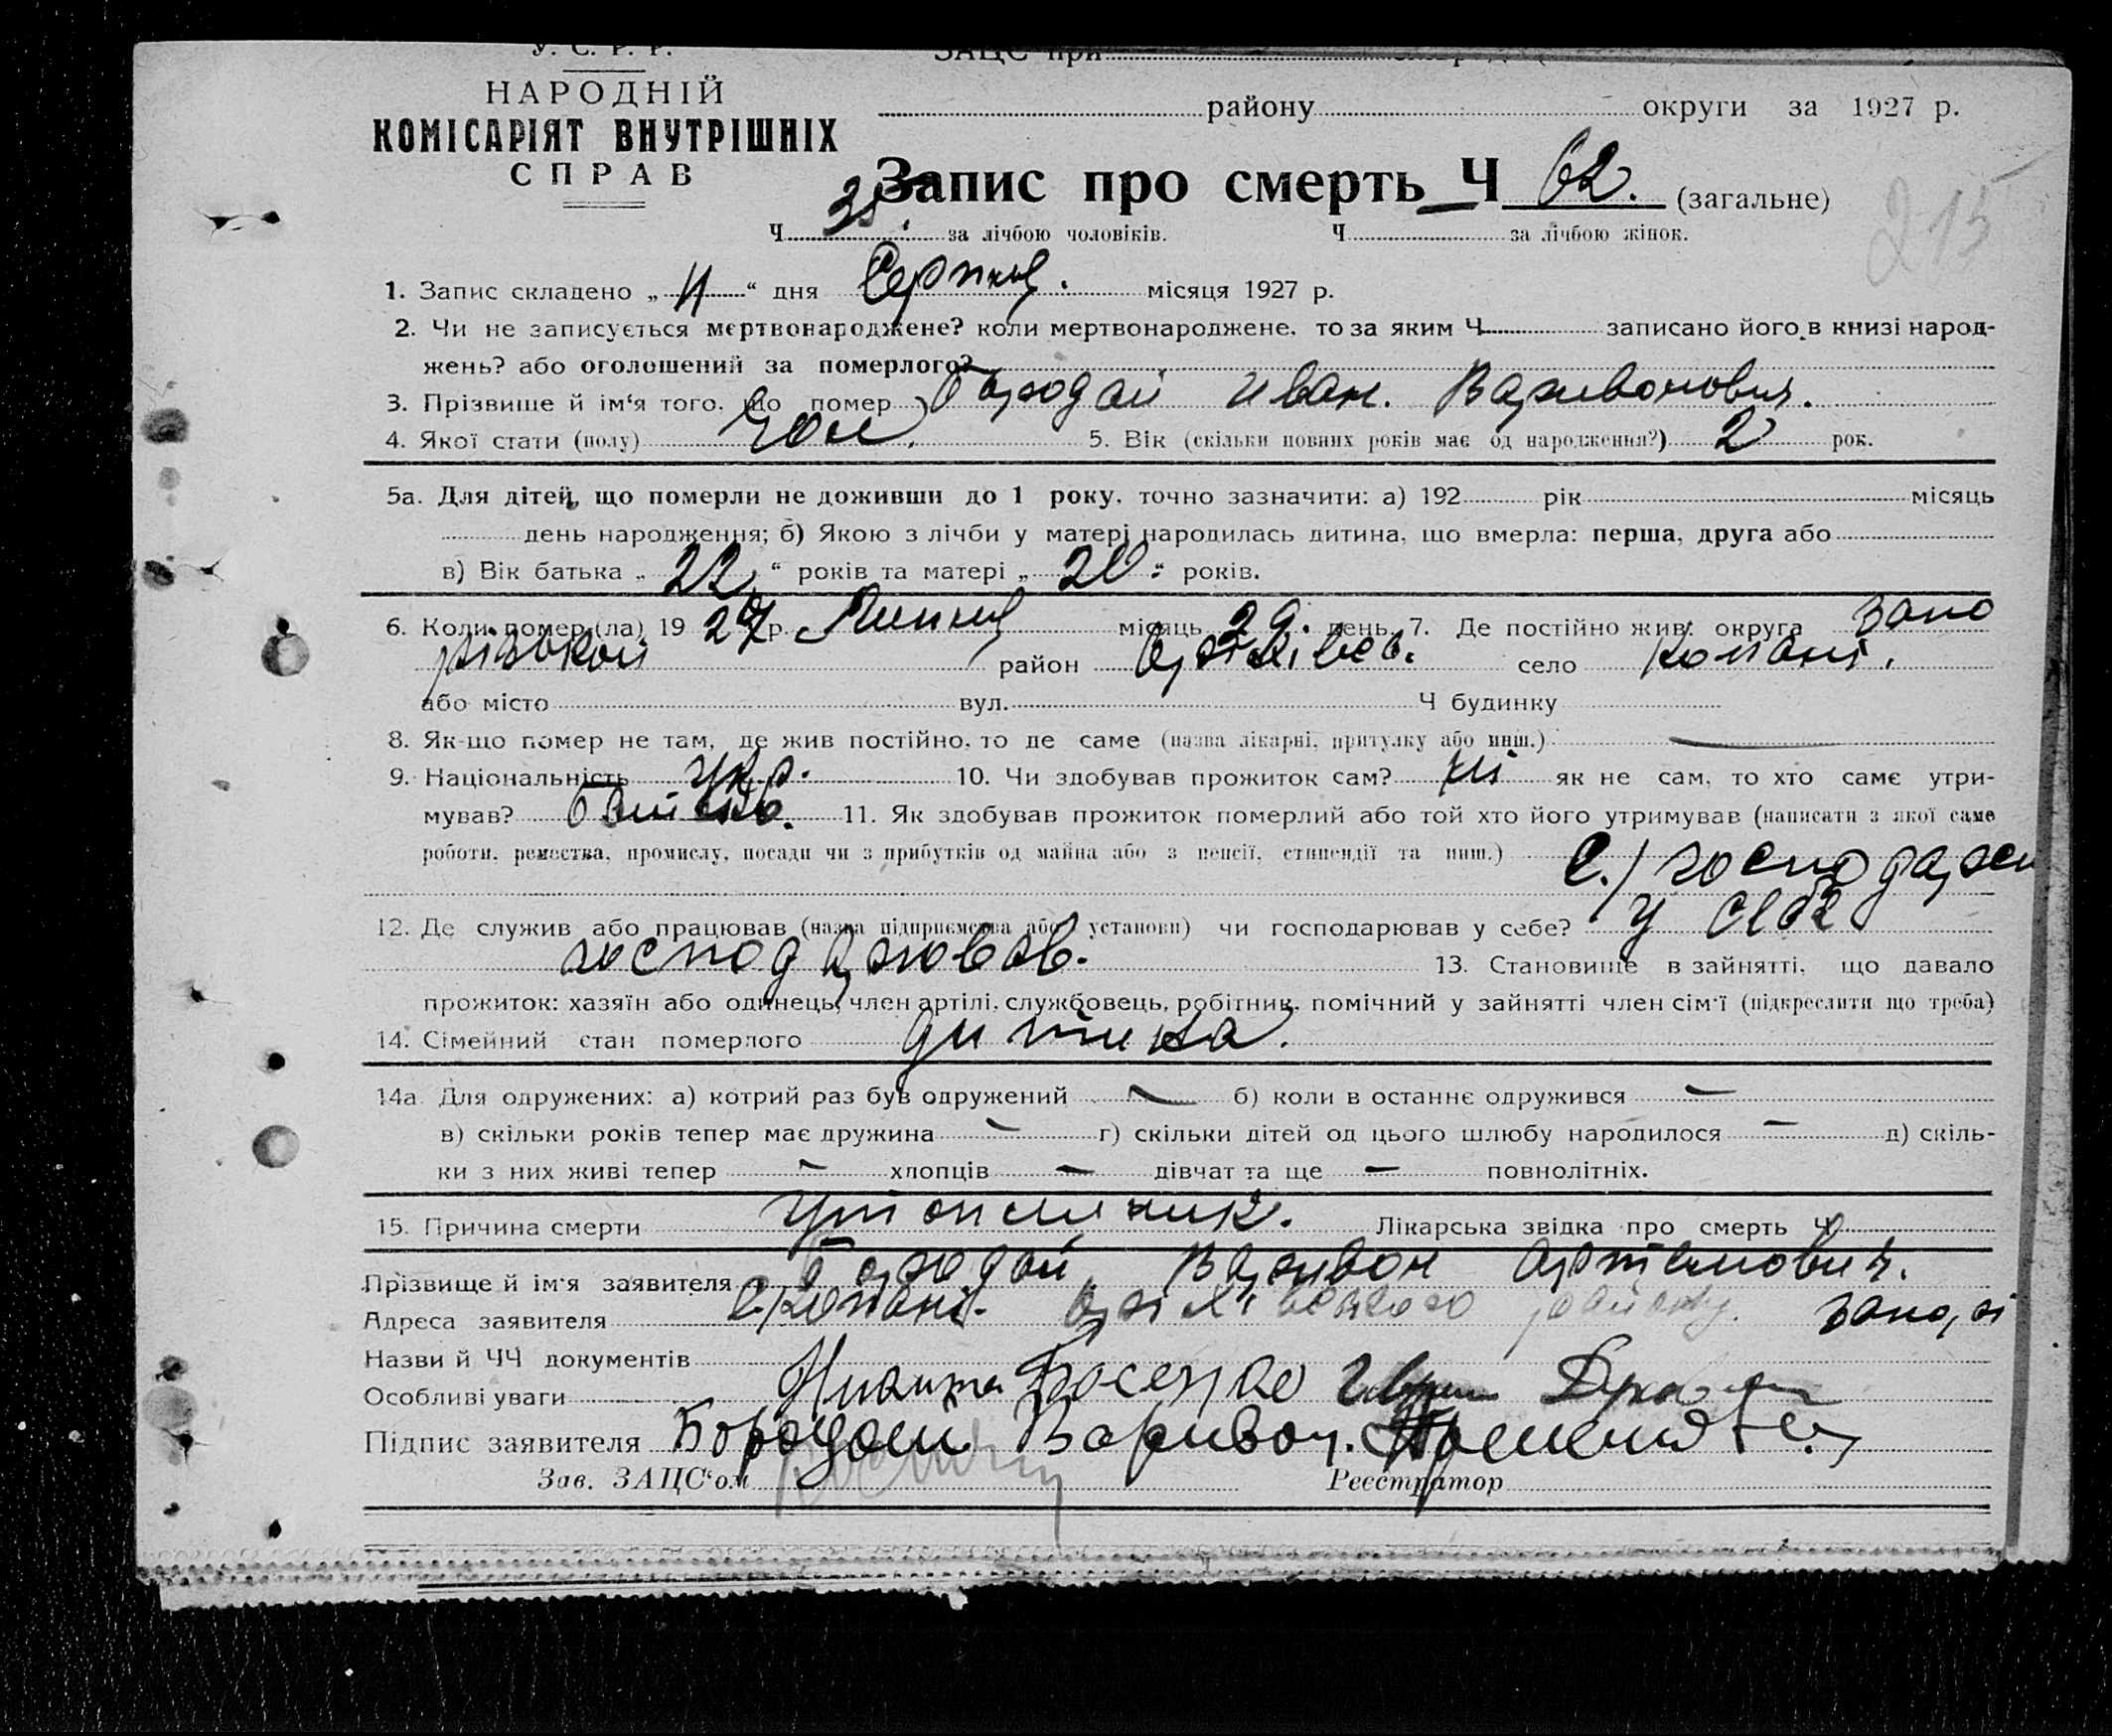 У. С. Р. Р.
ЗАЦС при
НАРОДНІЙ
КОМІСАРІЯТ ВНУТРІШНІХ
СПРАВ
району округи за 1927 р.
Запис про смерть Ч 62. (загальне)
215
Ч 35. за лічбою чоловіків. Ч за лічбою жінок.
1. Запис складено „ 11 “ дня Серпня. місяця 1927 р.
2. Чи не записується мертвонароджене? коли мертвонароджене, то за яким Ч записано його в книзі народ-
жень? або оголошений за померлого?
3. Прізвище й ім‘я того, що помер Бородай Иван. Варивонович.
4. Якої стати (полу) Чол. 5. Вік (скільки повних років має од народження?) 2 рок.
5а. Для дітей, що померли не доживши до 1 року, точно зазначити: а) 192 рік місяць
день народження; б) Якою з лічби у матері народилась дитина, що вмерла: перша, друга або
в) Вік батька „ 22 “ років та матері „ 20 “ років.
6. Коли помер (ла) 19 27 р. Липня місяць 29. день 7. Де постійно жив: округа Запо
різькой район Оріхівсь. село Копані.
або місто вул. Ч будинку
8. Як-що помер не там, де жив постійно, то де саме (назва лікарні, притулку або инш.) —
9. Національність укр. 10. Чи здобував прожиток сам? ні як не сам, то хто саме утри-
мував? батько. 11. Як здобував прожиток померлий або той хто його утримував (написати з якої саме
роботи, ремества, промислу, посади чи з прибутків од майна або з пенсії, стипендії та инш.) С/господарем
12. Де служив або працював (назва підприємства або установи) чи господарював у себе? у себе
господарював. 13. Становище в зайнятті, що давало
прожиток: хазяїн або одинець, член артілі, службовець, робітник, помічний у зайнятті член сім‘ї (підкреслити що треба)
14. Сімейний стан померлого дитина.
14а Для одружених: а) котрий раз був одружений — б) коли в останнє одружився —
в) скільки років тепер має дружина — г) скільки дітей од цього шлюбу народилося — д) скіль-
ки з них живі тепер — хлопців — дівчат та ще — повнолітніх.
15. Причина смерти Лікарська звідка про смерть Ч
Прізвище й ім‘я заявителя Бородай Варивон Артемович.
Адреса заявителя С/Копані. Оріхівського району. Запорі
Назви й ЧЧ документів
Особливі уваги
Підпис заявителя Бородай Варивон.
Зав. ЗАЦС‘ом Реєстратор